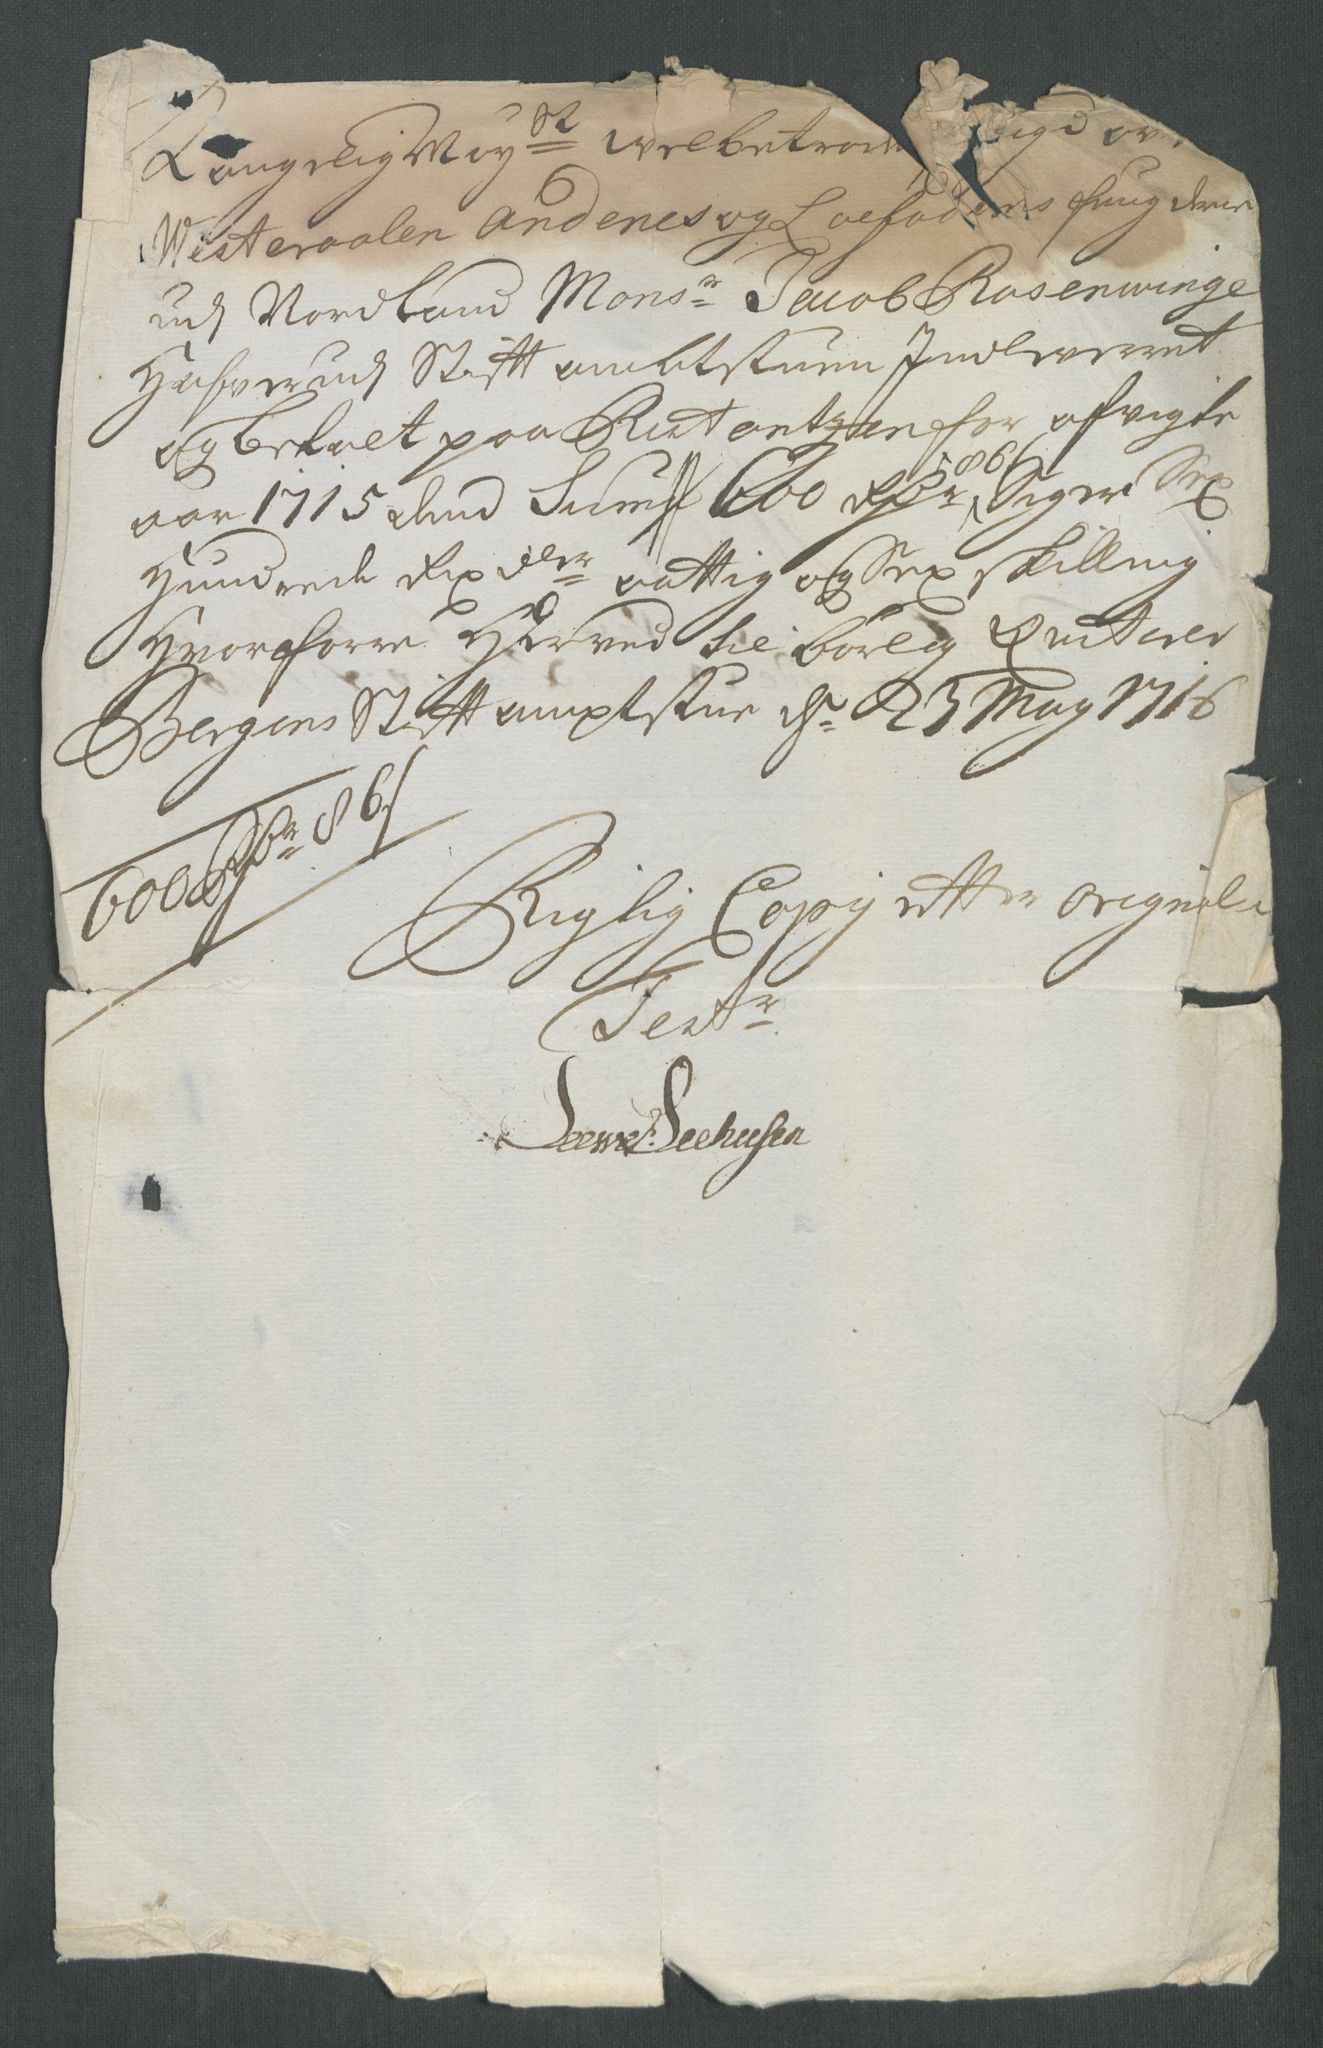 Kongelig May:st welbetrode fogd ov
Westeraalen Andenes og Loefodens fougderie
udj Nordland Mons:r Jacob Rosenwinge
Hafver udj Stift ambtstuen Indleverret
og betalt paa Restantzen for afvigte
aar 1715 dend Sum 600 Rdr 86 s Siger Sex
Hundrede Rix dlr aattig og Sex skilling
Hvorforre Herved til børlig Qvitering
Bergens Stift amptstue d: 23 May 1716
600 Rdr 86 s
Rigtig Copy efter originale
Test:r
Seehusen